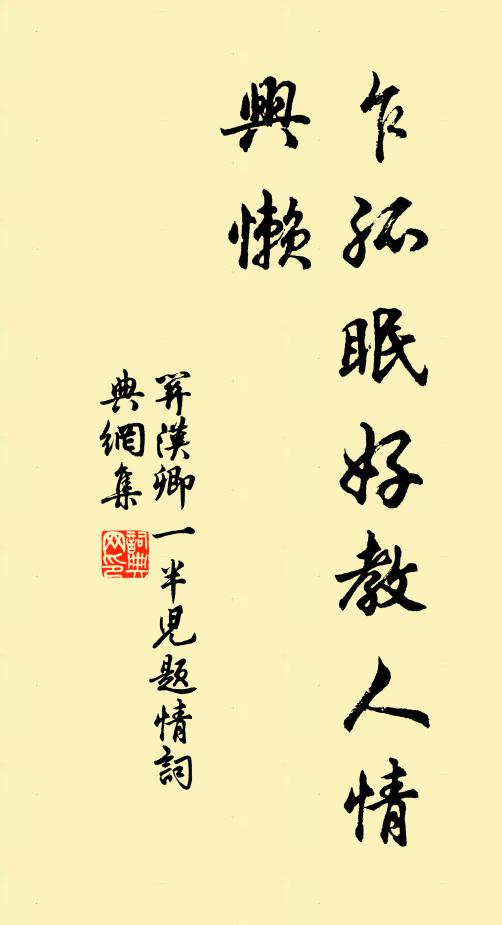 乍孤眠好教人情
興懶
關漢卿一半兒題情詞
典網集
詞典網印